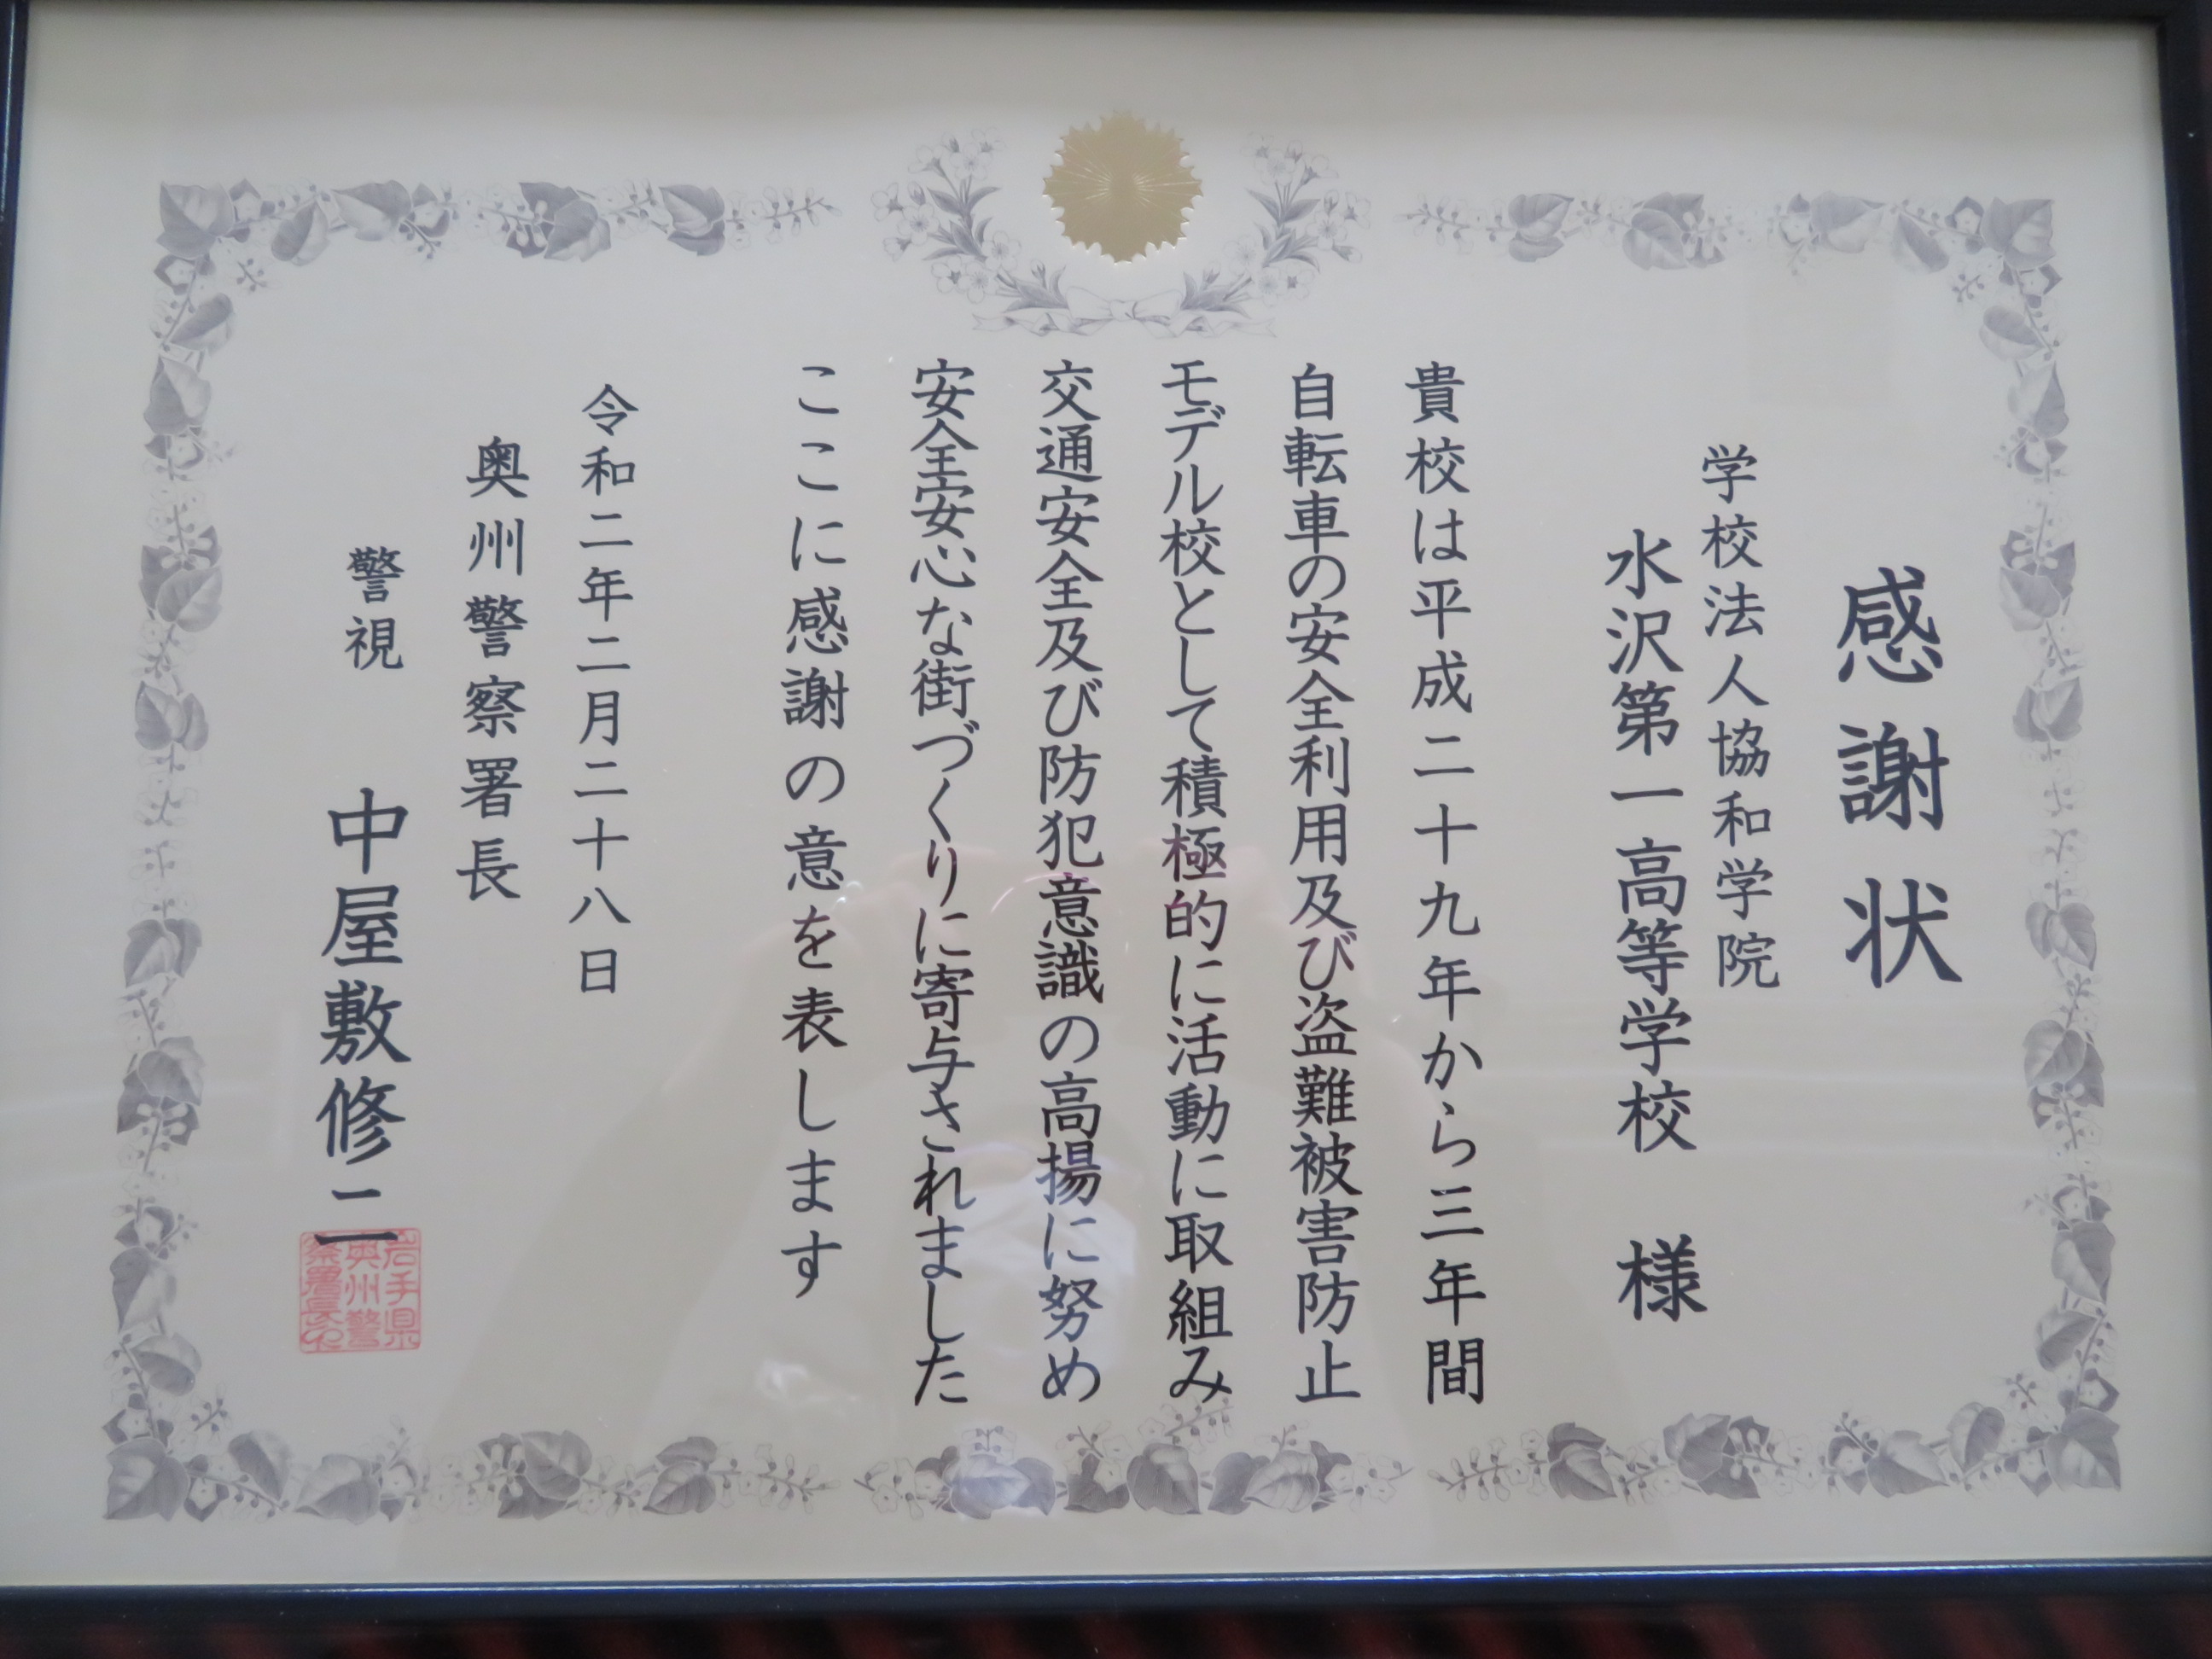 感謝状
学校法人協和学院
水沢第一高等学校 様
貴校は平成二十九年から三年間
自転車の安全利用及び盗難被害防止
モデル校として積極的に活動に取組み
交通安全及び防犯意識の高揚に努め
安全安心な街づくりに寄与されました
ここに感謝の意を表します
令和二年二月二十八日
奥州警察署長
警視 中屋敷修二
岩手県
奥州警
察署長之